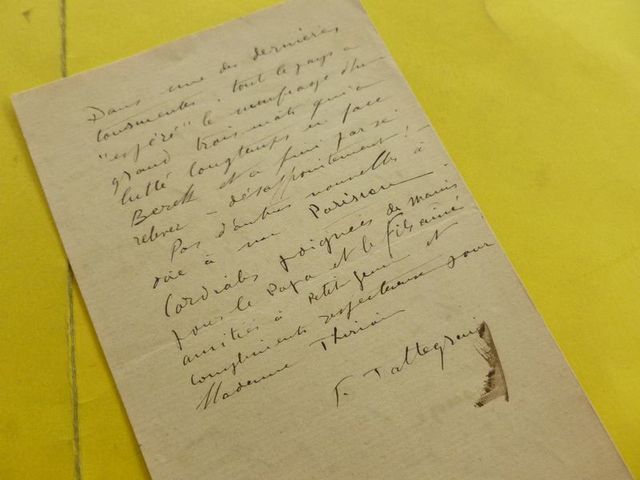 Dans une des dernières
tourmentes, tout le pays a
"espéré" le naufrage d'un
grand trois mats qui a
lutté longtemps en face
Berck et a fini par se
relever - désappointement! -
Pas d'autres nouvelles à
dire à un Parisien -
Cordiales poignées de mains
pour le Papa et le fils aîné
amitiés à petit Jean et
compliments respectueux pour
Madame
F. Tattegrain